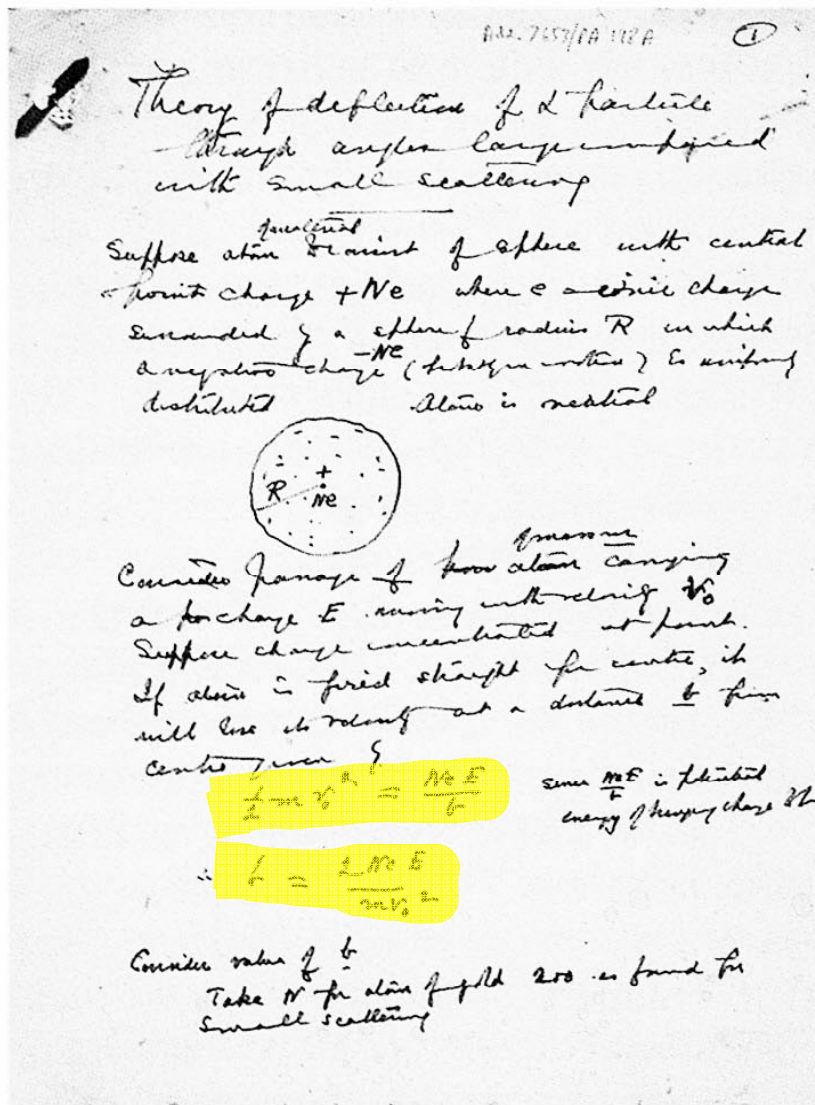 ①
Theory of deflection of α particle
through angles large compared
with small scattering
of material
Suppose atom consist of sphere with central
point charge +Ne where e = ionic charge
surrounded by a sphere of radius R in which
-Ne
a negative charge is uniformly
distributed Atom is neutral
+
R Ne
of mass m
Consider passage of atom carrying
a pos charge E moving with velocity v₀
Suppose charge concentrated at point.
If atom is fired straight for centre, it
will lose its velocity at a distance b from
centre given by
½ m v² = NeE/b
since NeE/b is potential
energy of charge
∴ b = 2NeE/mv₀²
Consider value of b
Take N for atom of gold 200 as found for
small scattering